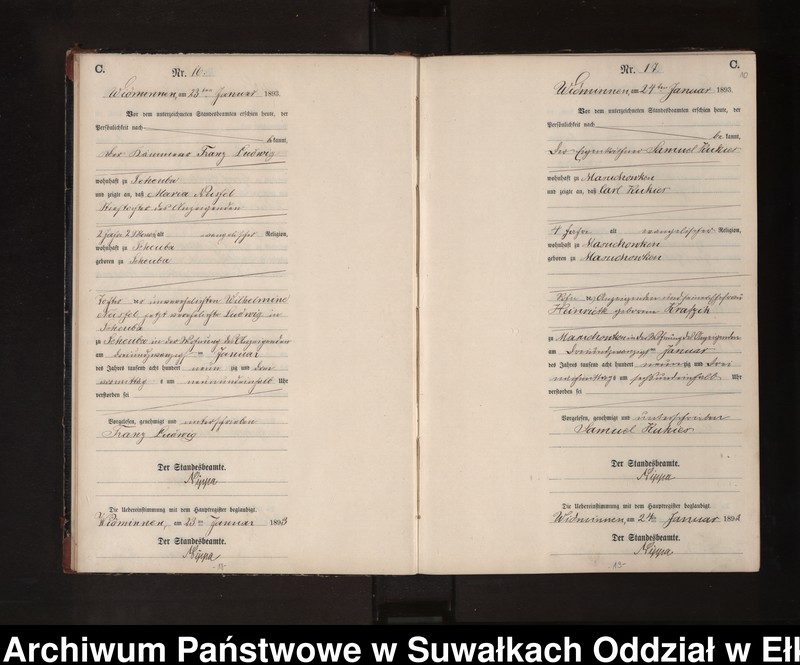 C.
Nr. 16
Widminnen, am 23ten Januar 1893.
Vor dem unterzeichneten Standesbeamten erschien heute, der
Persönlichkeit nach
bekannt,
der Kämmerer Franz Ludwig
wohnhaft zu
und zeigte an, daß Maria
Stieftochter des Anzeigenden
2 Jahre alt evangelischer Religion,
wohnhaft zu
geboren zu
Tochter der unverehelichten Wilhelmine
jetzt verehelichte Ludwig in
zu in der Wohnung des Anzeigenden
am dreiundzwanzigsten Januar
des Jahres tausend acht hundert neunzig und drei
vormittags um neununeinhalb Uhr
verstorben sei
Vorgelesen, genehmigt und unterschrieben
Franz Ludwig
Der Standesbeamte.
Nippa
Die Uebereinstimmung mit dem Hauptregister beglaubigt.
Widminnen, am 23ten Januar 1893
Der Standesbeamte.
Nippa
C.
Nr. 17
Widminnen, am 24ten Januar 1893.
Vor dem unterzeichneten Standesbeamten erschien heute, der
Persönlichkeit nach
bekannt,
der Eigenkäthner Samuel Kukies
wohnhaft zu Masuchowken
und zeigte an, daß Carl Kukies
4 Jahre alt evangelischer Religion,
wohnhaft zu Masuchowken
geboren zu Masuchowken
Sohn des Anzeigenden und seiner Ehefrau
Heinriette geborene
zu Masuchowken in der Wohnung des Anzeigenden
am dreiundzwanzigsten Januar
des Jahres tausend acht hundert neunzig und drei
nachmittags um sechsundeinhalb Uhr
verstorben sei
Vorgelesen, genehmigt und unterschrieben
Samuel Kukies
Der Standesbeamte.
Nippa
Die Uebereinstimmung mit dem Hauptregister beglaubigt.
Widminnen, am 24ten Januar 1893
Der Standesbeamte.
Nippa
Archiwum Państwowe w Suwałkach Oddział w Ełk